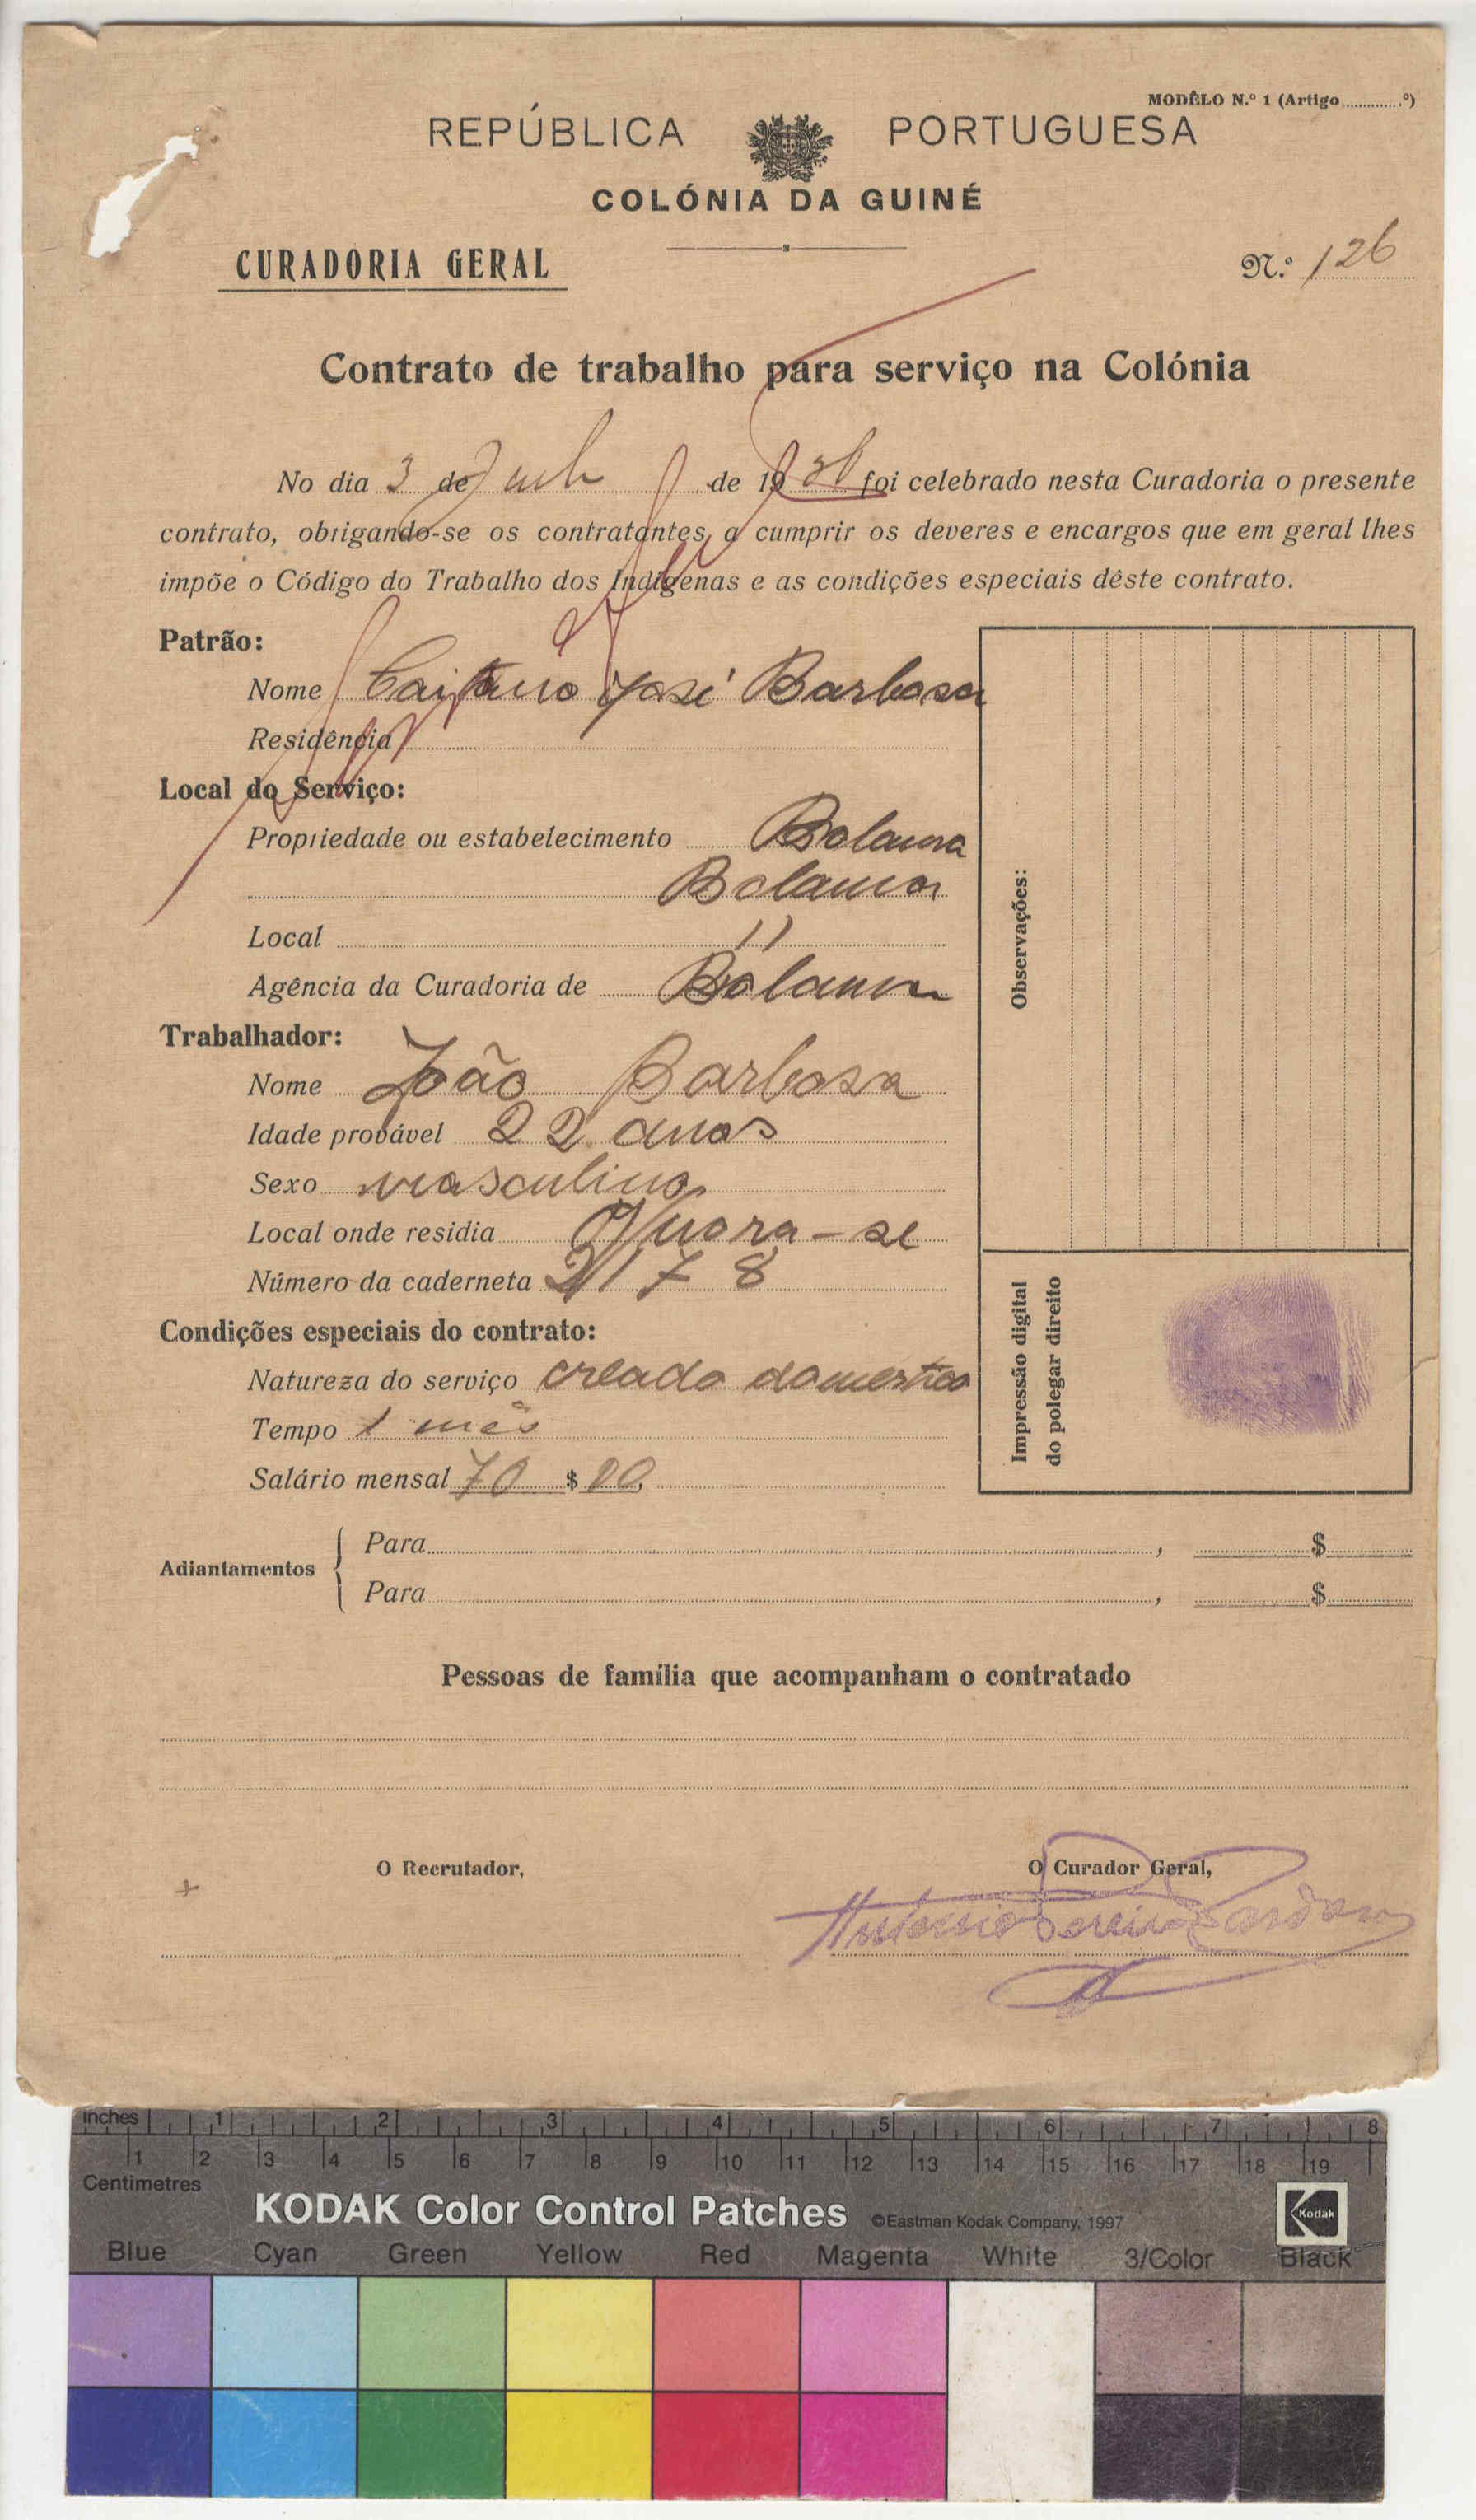 MODÊLO N.º 1 (Artigo............º)
REPÚBLICA PORTUGUESA
COLÓNIA DA GUINÉ
CURADORIA GERAL
N.º 126
Contrato de trabalho para serviço na Colónia
No dia 3 de de 19 foi celebrado nesta Curadoria o presente
contrato, obrigando-se os contratantes a cumprir os deveres e encargos que em geral lhes
impõe o Código do Trabalho dos Indígenas e as condições especiais dêste contrato.
Patrão:
Nome Caitano José Barbosa
Residência
Local do Serviço:
Propriedade ou estabelecimento Bolama
Bolama
Local "
Agência da Curadoria de Bolama
Trabalhador:
Nome João Barbosa
Idade provável 22 anos
Sexo masculino
Local onde residia
Número da caderneta 2178
Condições especiais do contrato:
Natureza do serviço creado domestico
Tempo 1 mês
Salário mensal 70 $ 00
Observações:
Impressão digital
do polegar direito
Adiantamentos
Para , $
Para , $
Pessoas de família que acompanham o contratado
O Recrutador,
O Curador Geral,
Antonio Pereira Cardoso
inches 1 2 3 4 5 6 7 8
1 2 3 4 5 6 7 8 9 10 11 12 13 14 15 16 17 18 19
Centimetres
KODAK Color Control Patches ©Eastman Kodak Company, 1997 Kodak
Blue Cyan Green Yellow Red Magenta White 3/Color Black